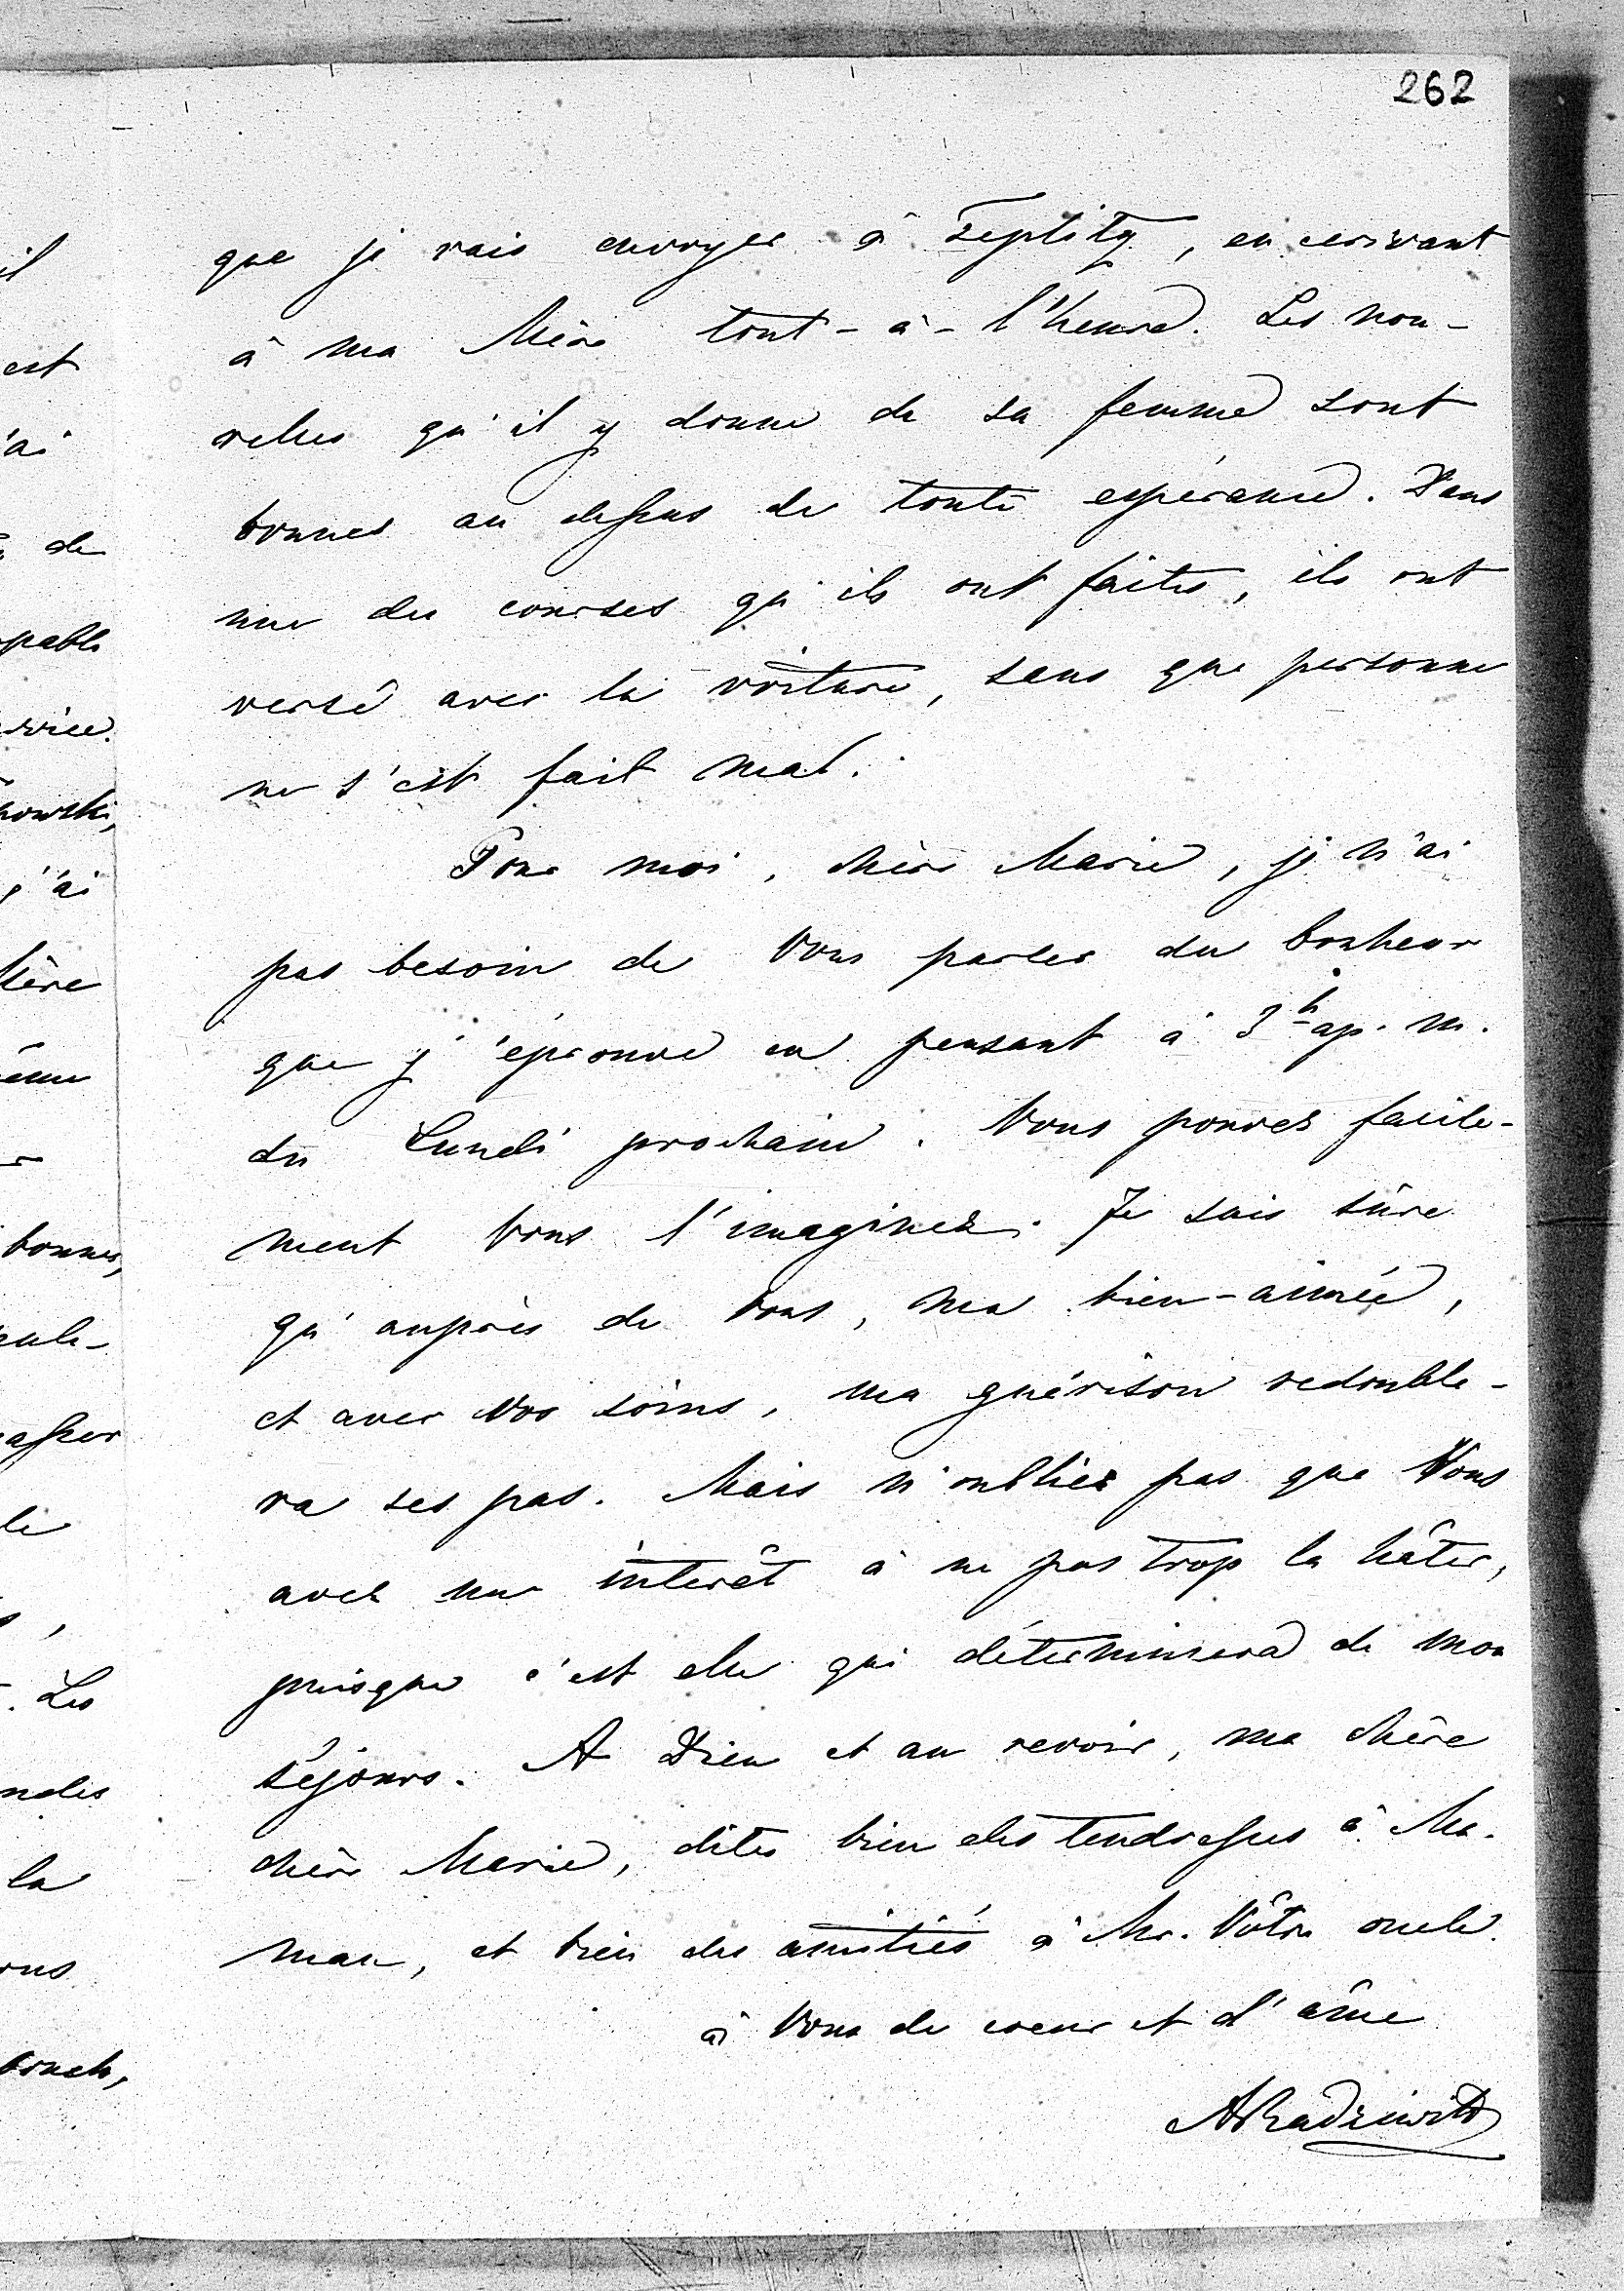 262
que je vais envoyer à Teplitz, en ecrivant
à ma Mère tout-à-l'heure. Les nou-
velles qu'il y donne de sa femme sont
bonnes au dessus de toute espérance. Dans
une des courses qu'ils ont faites, ils ont
versé avec la voiture, sans que personne
ne s'est fait mal.
Pour moi, chère Marie, je n'ai
pas besoin de Vous parler du bonheur
que j'éprouve en pensant à 3h ap. m.
du Lundi prochain. Vous pouvez facile-
ment Vous l'imaginez. Je suis sûre
qu'auprès de Vous, ma bien-aimée,
et avec Vos soins, ma guérison redouble-
ra ses pas. Mais n'oubliez pas que Vous
avez un interêt à ne pas trop la hâter,
puisque c'est elle qui déterminera de mon
séjours. A Dieu et au revoir, ma chère
chère Marie, dites bien des tendresses à Ma-
man, et bien des amitiés à Mr. Vôtre oncle.
à Vous de coeur et d'âme
ARadziwill
il
est
'ai
de
pable
rvice.
nowski,
j'ai
Mère
bonnes,
asser
le
. Les
la